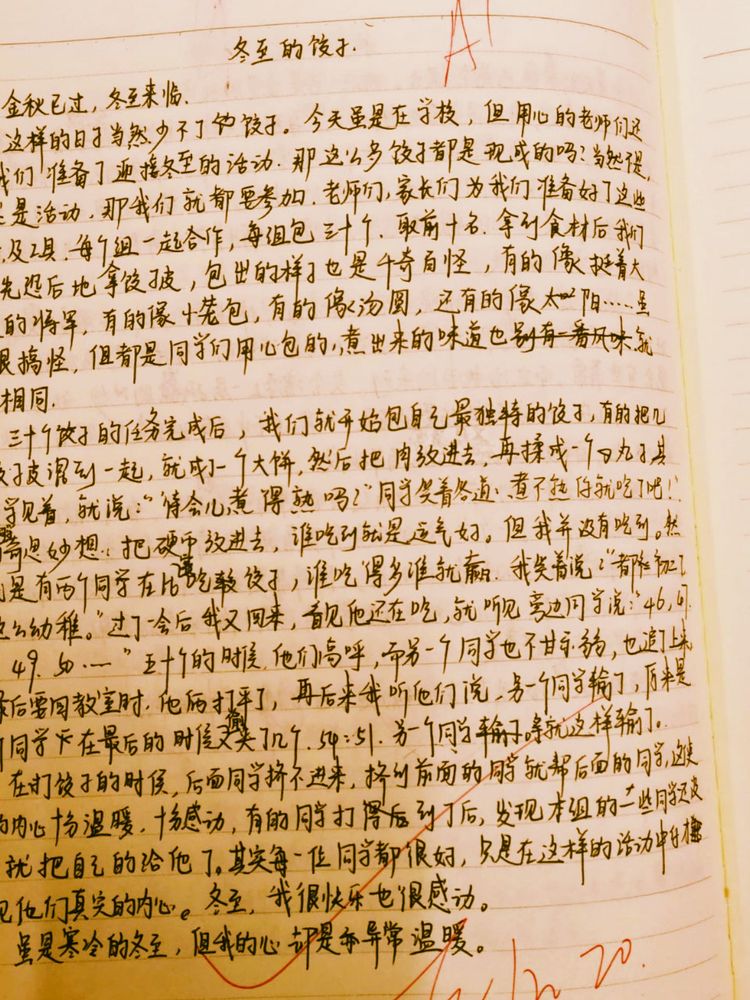 A1
冬至的饺子.
金秋已过,冬至来临.
这样的日子当然少不了饺子。今天虽是在学校,但用心的老师们还
我们准备了迎接冬至的活动.那这么多饺子都是现成的吗?当然不是,
是活动,那我们就都要参加.老师们,家长们为我们准备好了这些
及工具.每个组一起合作,每组包三十个.取前十名.拿到食材后我们
先恐后地拿饺子皮,包出的样子也是千奇百怪,有的像挺着大
的将军,有的像小笼包,有的像汤圆,还有的像太阳……虽
很搞怪,但都是同学们用心包的,煮出来的味道也别有一番风味就
相同.
三十个饺子的任务完成后,我们就开始包自己最独特的饺子,有的把几
饺子皮滑到一起,就成了一个大饼,然后把肉放进去,再揉成一个丸子其
学见着,就说:“待会儿煮得熟吗?”同学笑着答道:煮不熟你就吃了吧!”
奇思妙想:把硬币放进去,谁吃到就是运气好。但我并没有吃到。然
是有两个同学在比赛吃饺子,谁吃得多谁就赢.我笑着说:“都初二了
这么幼稚。”过了一会后我又回来,看见他还在吃,就听见旁边同学说:“46,47
49.50.…”五十个的时候,他们高呼,而另一个同学也不甘示弱,也追了上来
最后要回教室时.他俩打平了,再后来我听他们说,另一个同学输了,原来是
同学在最后的时候又夹了几个.54:51.另一个同学就这样输了。
在打饺子的时候,后面同学挤不进来,挤到前面的同学就帮后面的同学,这使
的内心十分温暖,十分感动,有的同学打得后到了后,发现本组的一些同学还没
就把自己的给他了。其实每一位同学都很好,只是在这样的活动中才
见他们真实的内心。冬至,我很快乐也很感动。
虽是寒冷的冬至,但我的心却是异常温暖。
12/20.